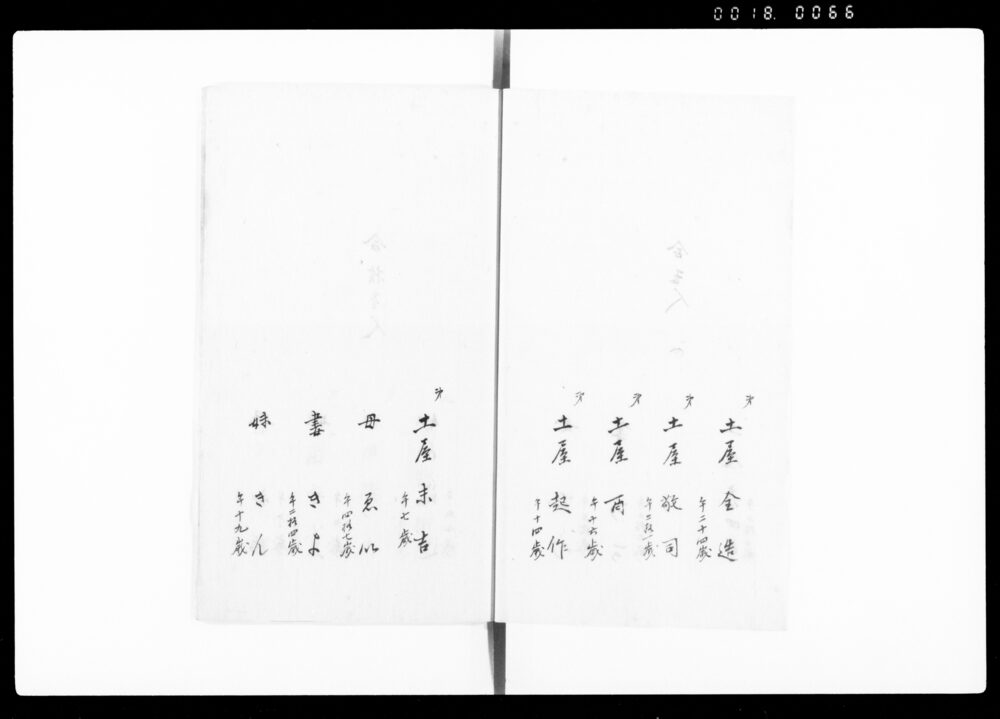 0018. 0066
弟
土屋全造
年二十四歳
弟
土屋敬司
年二拾一歳
弟
土屋酉
年十六歳
弟
土屋起作
年十四歳
弟
土屋末吉
年七歳
母 ゑい
年四拾七歳
妻 きよ
年二拾四歳
妹 きん
年十九歳